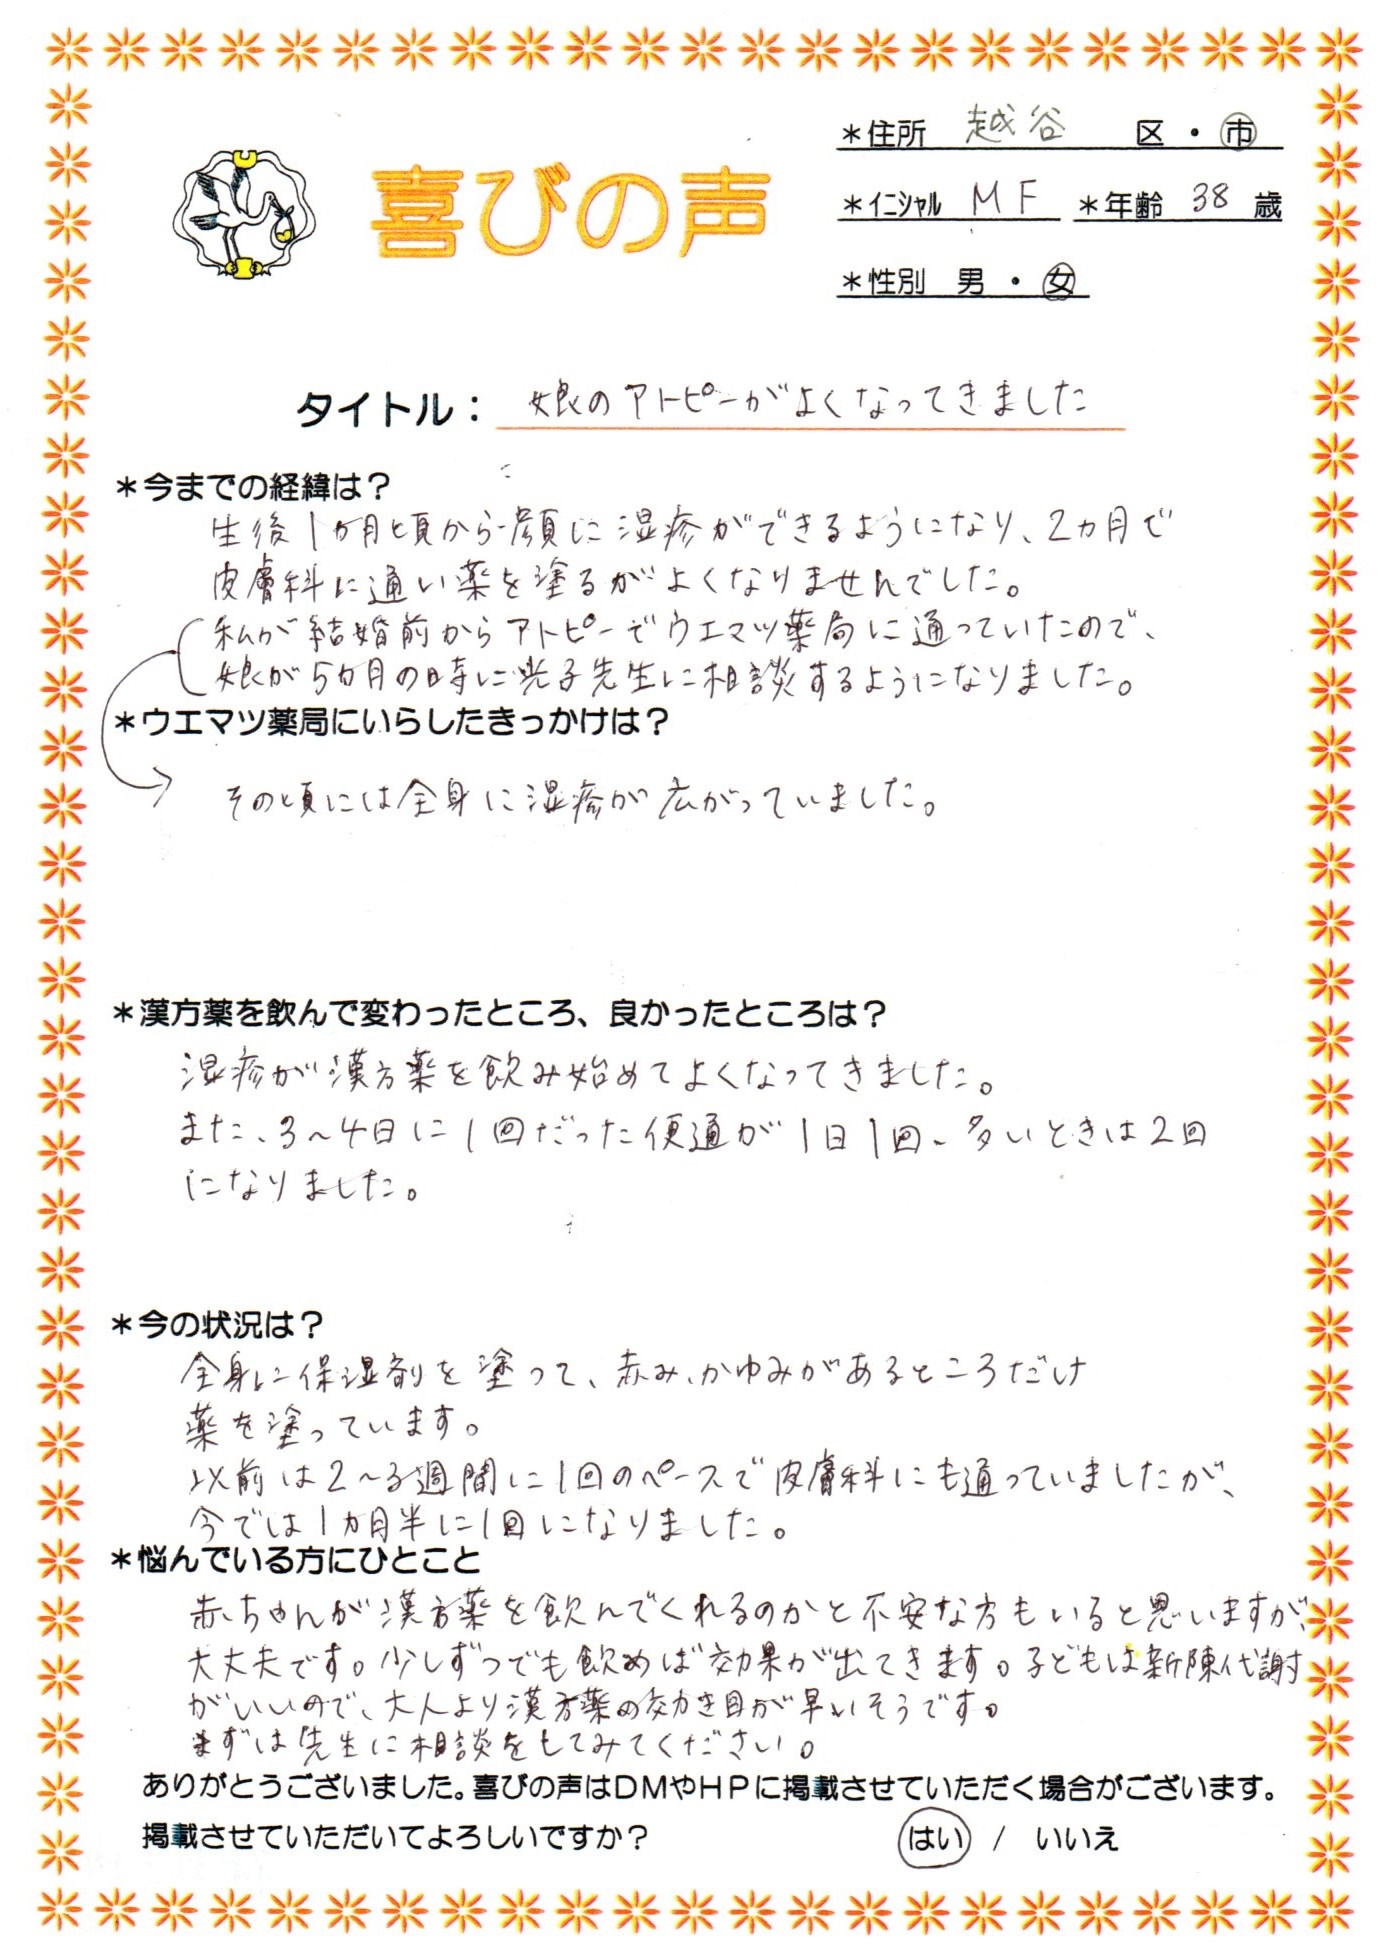 ＊住所 越谷 区・市
喜びの声
＊イニシャル MF ＊年齢 38 歳
＊性別 男・女
タイトル： 娘のアトピーがよくなってきました
＊今までの経緯は？
生後1か月頃から顔に湿疹ができるようになり、2カ月で
皮膚科に通い薬を塗るがよくなりませんでした。
私が結婚前からアトピーでウエマツ薬局に通っていたので、
娘が5か月の時に光子先生に相談するようになりました。
＊ウエマツ薬局にいらしたきっかけは？
その頃には全身に湿疹が広がっていました。
＊漢方薬を飲んで変わったところ、良かったところは？
湿疹が漢方薬を飲み始めてよくなってきました。
また、3～4日に1回だった便通が1日1回、多いときは2回
になりました。
＊今の状況は？
全身に保湿剤を塗って、赤み、かゆみがあるところだけ
薬を塗っています。
以前は2～3週間に1回のペースで皮膚科にも通っていましたが、
今では1カ月半に1回になりました。
＊悩んでいる方にひとこと
赤ちゃんが漢方薬を飲んでくれるのかと不安な方もいると思いますが、
大丈夫です。少しずつでも飲めば効果が出てきます。子どもは新陳代謝
がいいので、大人より漢方薬の効き目が早いそうです。
まずは先生に相談をしてみてください。
ありがとうございました。喜びの声はＤＭやＨＰに掲載させていただく場合がございます。
掲載させていただいてよろしいですか？ はい / いいえ